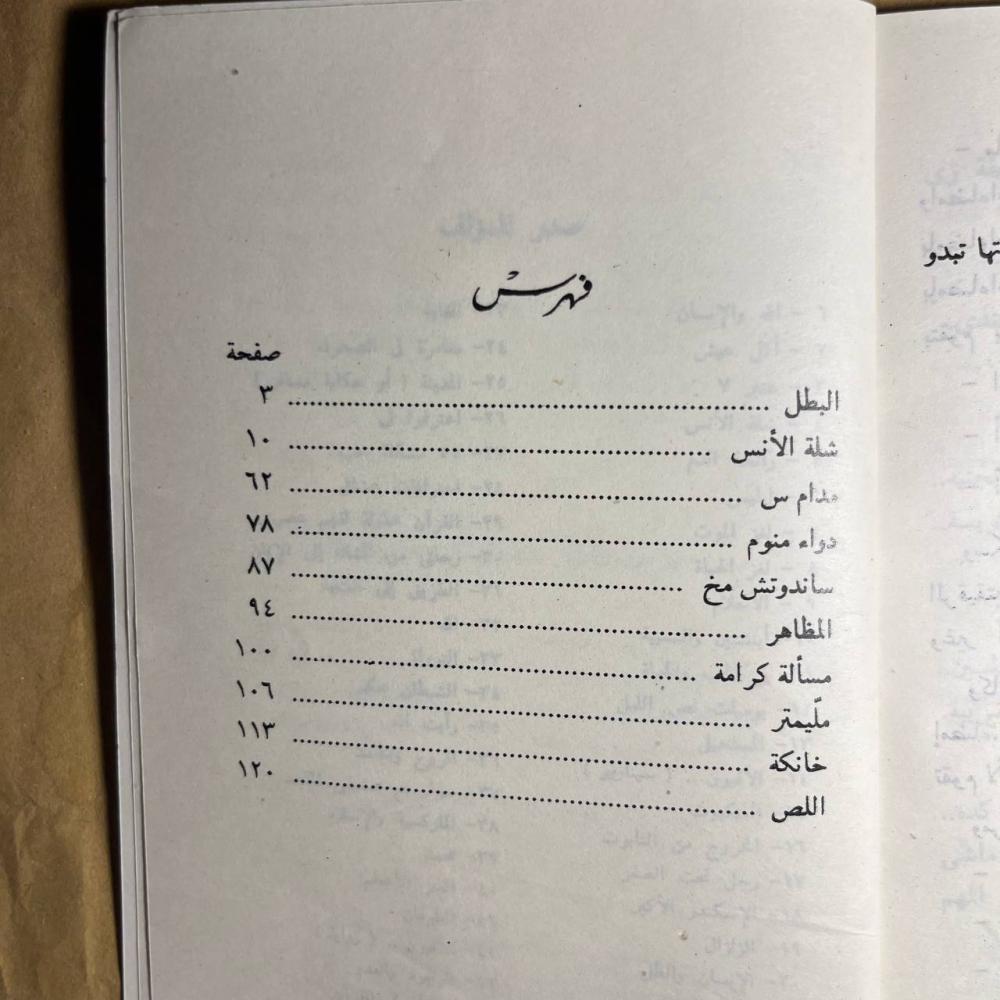 فهرس
صفحة
البطل ........ ٣
شلة الأنس ........ ١٠
مدام س ........ ٦٢
دواء منوم ........ ٧٨
ساندوتش مخ ........ ٨٧
المظاهر ........ ٩٤
مسألة كرامة ........ ١٠٠
ملّيمتر ........ ١٠٦
خانكة ........ ١١٣
اللص ........ ١٢٠
تبدو